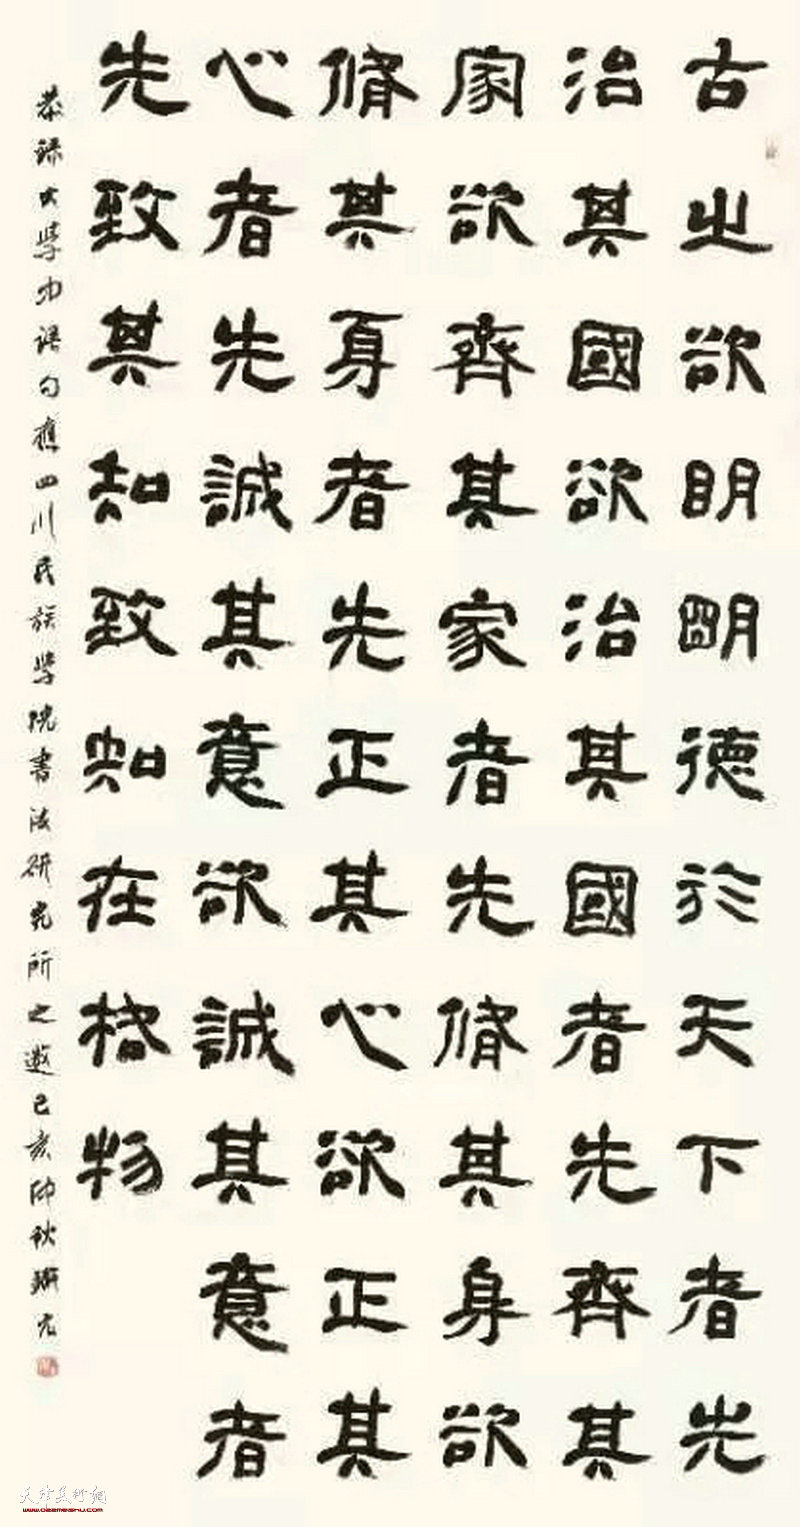 古之欲明明德於天下者先
治其國欲治其國者先齊其
家欲齊其家者先脩其身欲
脩其身者先正其心欲正其
心者先誠其意欲誠其意者
先致其知致知在格物
恭錄大學中語句應四川民族學院書法研究所之邀己亥仲秋
天津美術網